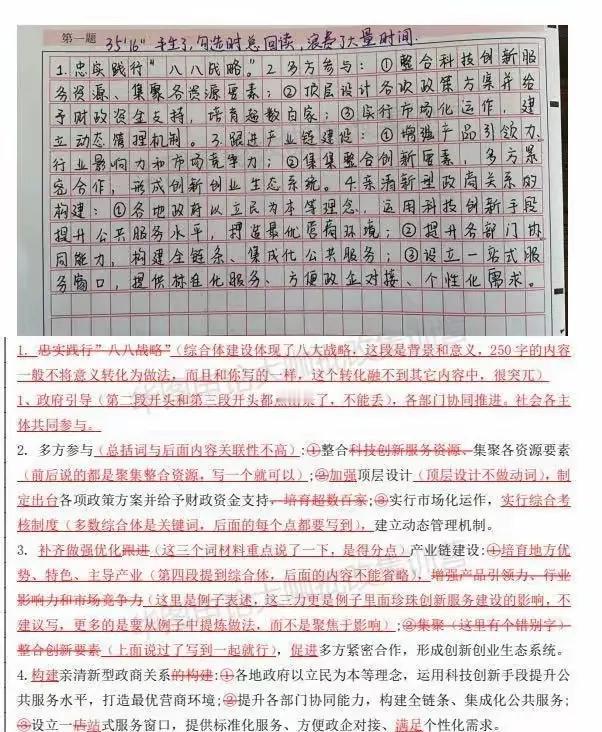 第一题 35'16" 手生了,勾造时总回读,浪费了大量时间.
1.忠实践行"八八战略。"2.多方参与:①整合科技创新服
务资源、集聚各资源要素;②顶层设计各项政策方案并给
予财政资金支持,培育超数百家;③实行市场化运作,建
立动态管理机制。3.跟进产业链建设:①增强产品引领力、
行业影响力和市场竞争力;②集集整合创新要素,多方紧
密合作,形成创新创业生态系统。4.亲清新型政商关系的
构建:①各地政府以立民为本等理念,运用科技创新手段
提升公共服务水平,打造最优营商环境;②提升各部门协
同能力,构建全链条、集成化公共服务;③设立一站式服
务窗口,提供标准化服务、方便政企对接、个性化需求。
1. 忠实践行"八八战略"(综合体建设体现了八大战略,这段是背景和意义,250字的内容
一般不将意义转化为做法,而且和你写的一样,这个转化融不到其它内容中,很突兀)
1、政府引导(第二段开头和第三段开头都点出来了,不能丢),各部门协同推进。社会各主
体共同参与。
2. 多方参与(总括词与后面内容关联性不高):①整合科技创新服务资源、集聚各资源要素
(前后说的都是聚集整合资源,写一个就可以);②加强顶层设计(顶层设计不做动词),制
定出台各项政策方案并给予财政资金支持,培育超数百家;③实行市场化运作,实行综合考
核制度(多数综合体是关键词,后面的每个点都要写到),建立动态管理机制。
3. 补齐做强优化跟进(这三个词材料重点说了一下,是得分点)产业链建设:①培育地方优
势、特色、主导产业(第四段提到综合体,后面的内容不能省略),增强产品引领力、行业
影响力和市场竞争力(这里是例子表述,这三力更是例子里面珍珠创新服务建设的影响,不
建议写,更多的是要从例子中提炼做法,而不是聚焦于影响);②集聚(这里有个错别字)
整合创新要素(上面说过了写到一起就行),促进多方紧密合作,形成创新创业生态系统。
4.构建亲清新型政商关系的构建:①各地政府以立民为本等理念,运用科技创新手段提升公
共服务水平,打造最优营商环境;②提升各部门协同能力,构建全链条、集成化公共服务;
③设立一店站式服务窗口,提供标准化服务、方便政企对接、满足个性化需求。